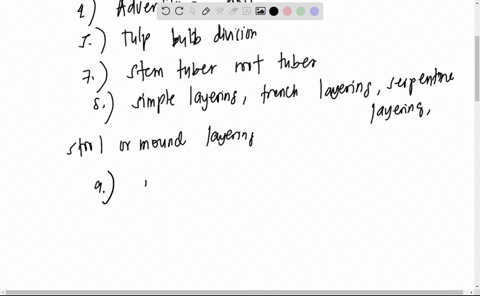 4.)
5.) Tulp bulb division
7.) Stem tuber root tuber
8.) simple layering, trench layering, serpentine
layering,
or mound layering
9.)